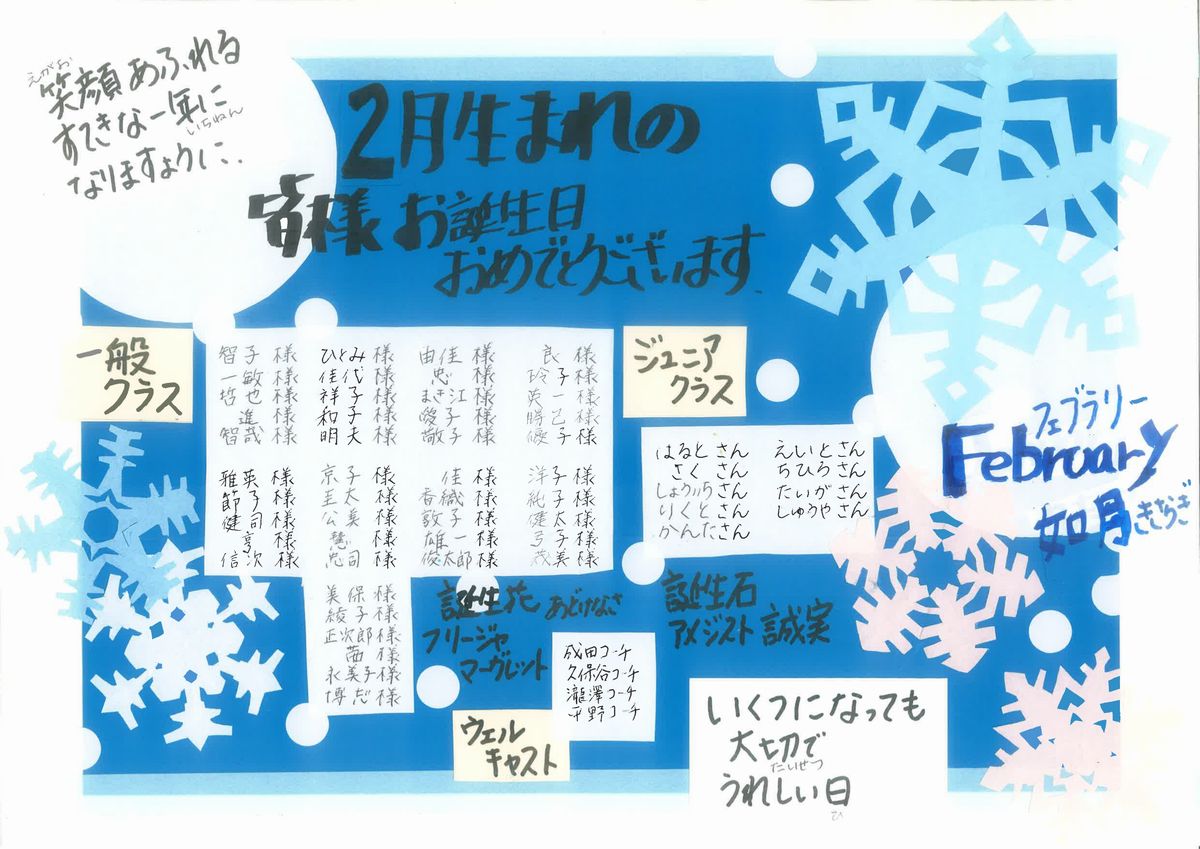 えがお
笑顔あふれる
すてきな一年に
いちねん
なりますように.
2月生まれの
皆様 お誕生日
おめでとうございます.
一般
クラス
智子様 ひとみ様 由佳様 良様
一敏様 佳代様 忠様 玲子様
哲也様 祥子様 まき江様 英一様
進様 和子様 愛子様 勝己様
智哉様 明夫様 敬子様 優子様
雅英様 京子様 佳様 洋子様
節子様 圭太様 香織様 純子様
健司様 公美様 敦子様 健太様
亨様 慧様 雄一様 弓子様
信次様 忠司様 俊太郎様 茂美様
美保様
綾子様
正次郎様
茜様
永美子様
博志様
ジュニア
クラス
はるとさん えいとさん
さくさん ちひろさん
しょういちさん たいがさん
りくとさん しゅうやさん
かんたさん
フェブラリー
February
如月 きさらぎ
誕生花 あどけなさ
フリージャ
マーグレット
誕生石
アメジスト 誠実
ウェル
キャスト
成田コーチ
久保谷コーチ
瀧澤コーチ
平野コーチ
いくつになっても
大切で
たいせつ
うれしい日
ひ